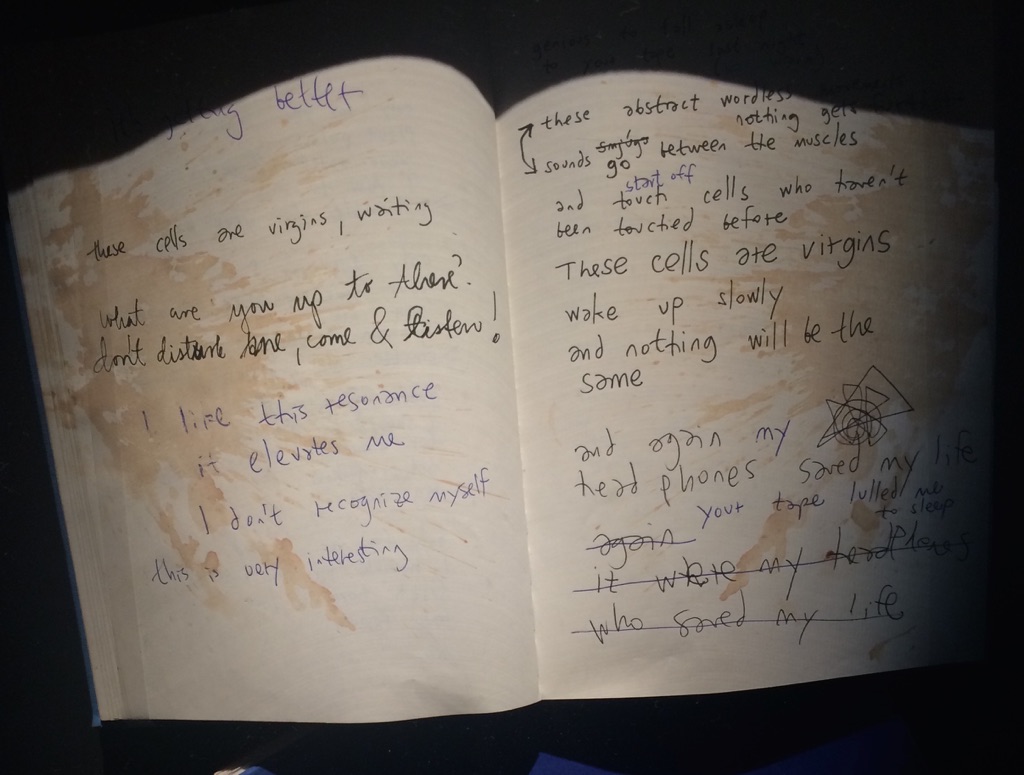 better
these cells are virgins, waiting
what are you up to there?
don't disturb me, come & listen!
I like this resonance
it elevates me
I don't recognize myself
this is very interesting
these abstract wordless
nothing gets
sounds go between the muscles
start off
and touch cells who haven't
been touched before
These cells are virgins
wake up slowly
and nothing will be the
same
and again my
head phones saved my life
your tape lulled me
to sleep
again
it where my headphones
who saved my life